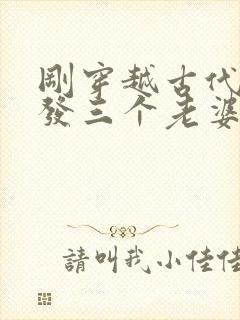 剛穿越古代
發三个老婆
請叫我小佳佳